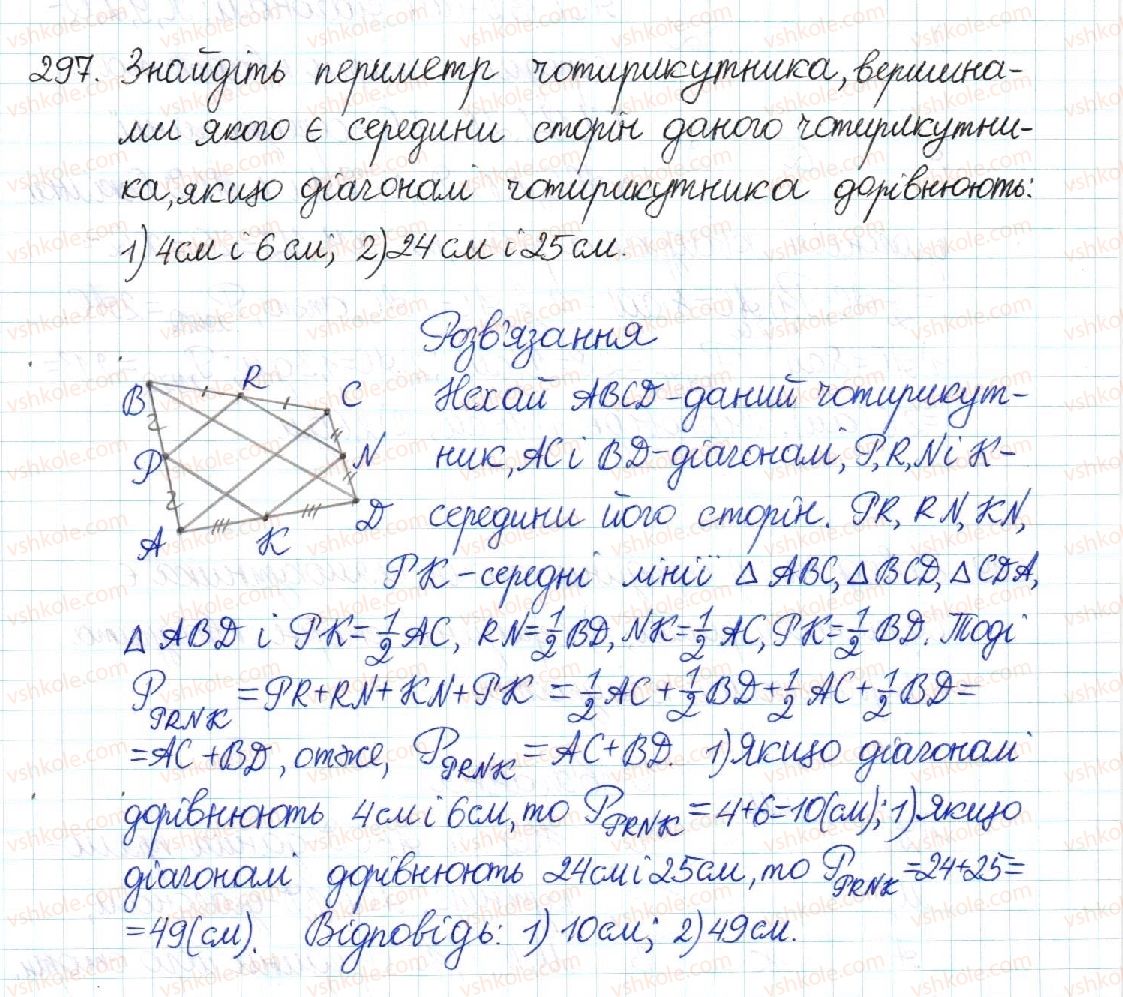 297. Знайдіть периметр чотирикутника, вершина-
ми якого є середини сторін даного чотирикутни-
ка, якщо діагоналі чотирикутника дорівнюють:
1) 4 см і 6 см; 2) 24 см і 25 см.
Розв'язання
B R C
P N
A K D
Нехай ABCD - даний чотирикут-
ник, AC і BD - діагоналі, P, R, N і K -
середини його сторін. PR, RN, KN,
PK - середні лінії △ ABC, △ BCD, △ CDA,
△ ABD і PK = 1/2 AC, RN = 1/2 BD, NK = 1/2 AC, PK = 1/2 BD. Тоді
P PRNK = PR + RN + KN + PK = 1/2 AC + 1/2 BD + 1/2 AC + 1/2 BD =
= AC + BD, отже, P PRNK = AC + BD. 1) Якщо діагоналі
дорівнюють 4 см і 6 см, то P PRNK = 4 + 6 = 10 (см); 1) Якщо
діагоналі дорівнюють 24 см і 25 см, то P PRNK = 24 + 25 =
= 49 (см). Відповідь: 1) 10 см; 2) 49 см.